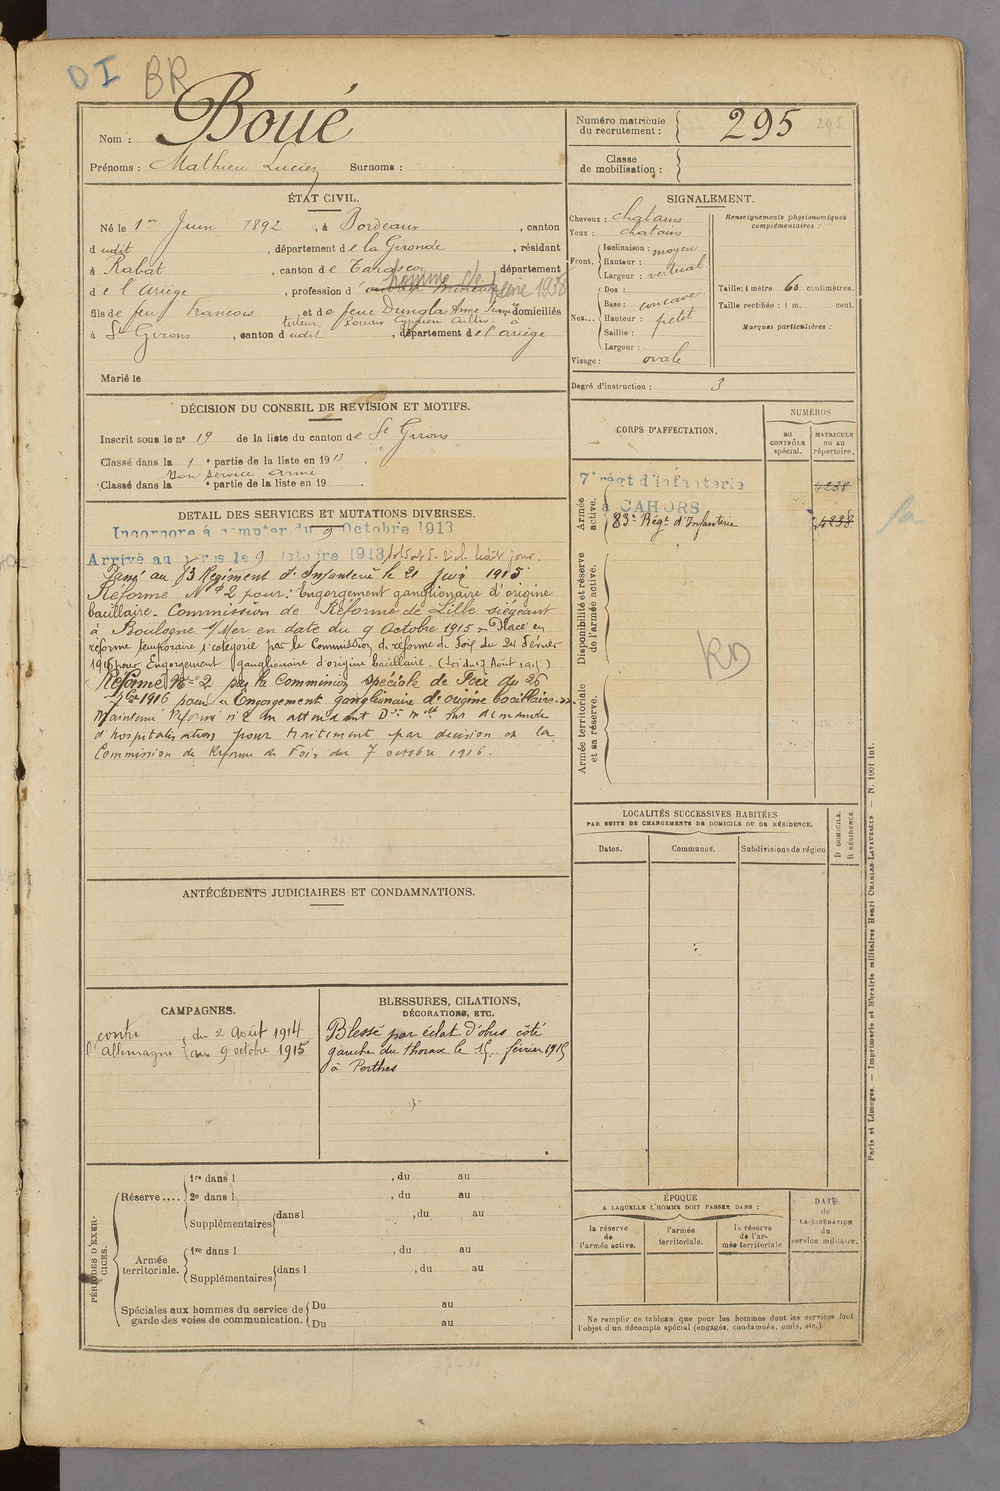 DI BR
Nom : Boué
Prénoms : Mathieu Lucien Surnoms :
Numéro matricule du recrutement : 295 295
Classe de mobilisation :
ÉTAT CIVIL.
Né le 1er Juin 1892, à Bordeaux, canton
dudit, département de la Gironde, résidant
à Rabat, canton de Tarascon, département
de l'Ariège, profession d' homme de peine 1938
fils de feu Francois et de feue Dunglas Anne domiciliés
tuteur
à St Girons, canton dudit, département de l'ariège
Marié le
SIGNALEMENT.
Cheveux : chatains
Yeux : chatains
Front. Inclinaison : moyen
Hauteur :
Largeur : vertical
Nez... Dos :
Base : concave
Hauteur : petit
Saillie :
Largeur :
Visage : ovale
Renseignements physionomiques complémentaires :
Taille: 1 mètre 60 centimètres.
Taille rectifiée : 1 m. cent.
Marques particulières :
Degré d'instruction : 3
DÉCISION DU CONSEIL DE REVISION ET MOTIFS.
Inscrit sous le n° 19 de la liste du canton de St Girons
Classé dans la 1 e partie de la liste en 19
Bon service armé
Classé dans la e partie de la liste en 19
DÉTAIL DES SERVICES ET MUTATIONS DIVERSES.
Incorporé à compter du 9 Octobre 1913
Arrivé au corps le 9 Octobre 1913 soldat de 2e cl. ledit jour.
Passé au 83 Régiment d'Infanterie le 21 juin 1915
Réformé N° 2 pour : Engorgement ganglionaire d'origine
bacillaire. Commission de Réforme de Lille siégeant
à Boulogne s/Mer en date du 9 Octobre 1915 - Placé en
réforme temporaire 1° catégorie par la Commission de réforme de Foix du 24 Février
1916 pour Engorgement ganglionaire d'origine bacillaire. (Loi du 17 Août 1915)
Réformé N° 2 par la Commission spéciale de Foix du 26
7bre 1916 pour « Engorgement ganglionaire d'origine bacillaire. »
Maintenu Réformé n° 2 en attendant sur demande
d'hospitalisation pour traitement par décision de la
Commission de Réforme de Foix du 7 octobre 1916.
CORPS D'AFFECTATION.
NUMÉROS
au CONTRÔLE spécial.
MATRICULE ou au répertoire.
Armée active.
7e régt d'infanterie 4238
à CAHORS
83e Régt d'Infanterie 4238
la
Disponibilité et réserve de l'armée active.
RD
Armée territoriale et sa réserve.
LOCALITÉS SUCCESSIVES HABITÉES
PAR SUITE DE CHANGEMENTS DE DOMICILE OU DE RÉSIDENCE.
Dates. Communes. Subdivisions de région
D DOMICILE.
R RÉSIDENCE.
ANTÉCÉDENTS JUDICIAIRES ET CONDAMNATIONS.
CAMPAGNES.
contre l'Allemagne
du 2 Août 1914
au 9 octobre 1915
BLESSURES, CITATIONS, DÉCORATIONS, ETC.
Blessé par éclat d'obus côté
gauche du thorax le 15 février 1915
à Perthes
PÉRIODES D'EXERCICES.
Réserve.... 1re dans l , du au
2e dans l , du au
Supplémentaires dans l , du au
Armée territoriale. 1re dans l , du au
Supplémentaires dans l , du au
Spéciales aux hommes du service de garde des voies de communication. Du au
Du au
ÉPOQUE
A LAQUELLE L'HOMME DOIT PASSER DANS :
la réserve de l'armée active.
l'armée territoriale.
la réserve de l'armée territoriale
DATE de LA LIBÉRATION du service militaire.
Ne remplir ce tableau que pour les hommes dont les services font
l'objet d'un décompte spécial (engagés, condamnés, omis, etc.).
Paris et Limoges. — Imprimerie et librairie militaires Henri CHARLES-LAVAUZELLE — N. 1001 int.